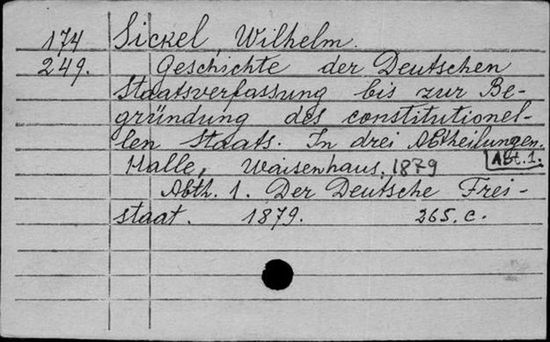 174 Sickel, Wilhelm.
249. Geschichte der Deutschen
Staatsverfassung bis zur Be-
gründung des constitutionel-
len Staats. In drei Abtheilungen.
Halle, Waisenhaus. 1879 Abt. 1.
Abth. 1. Der Deutsche Frei-
staat. 1879. 265. c.